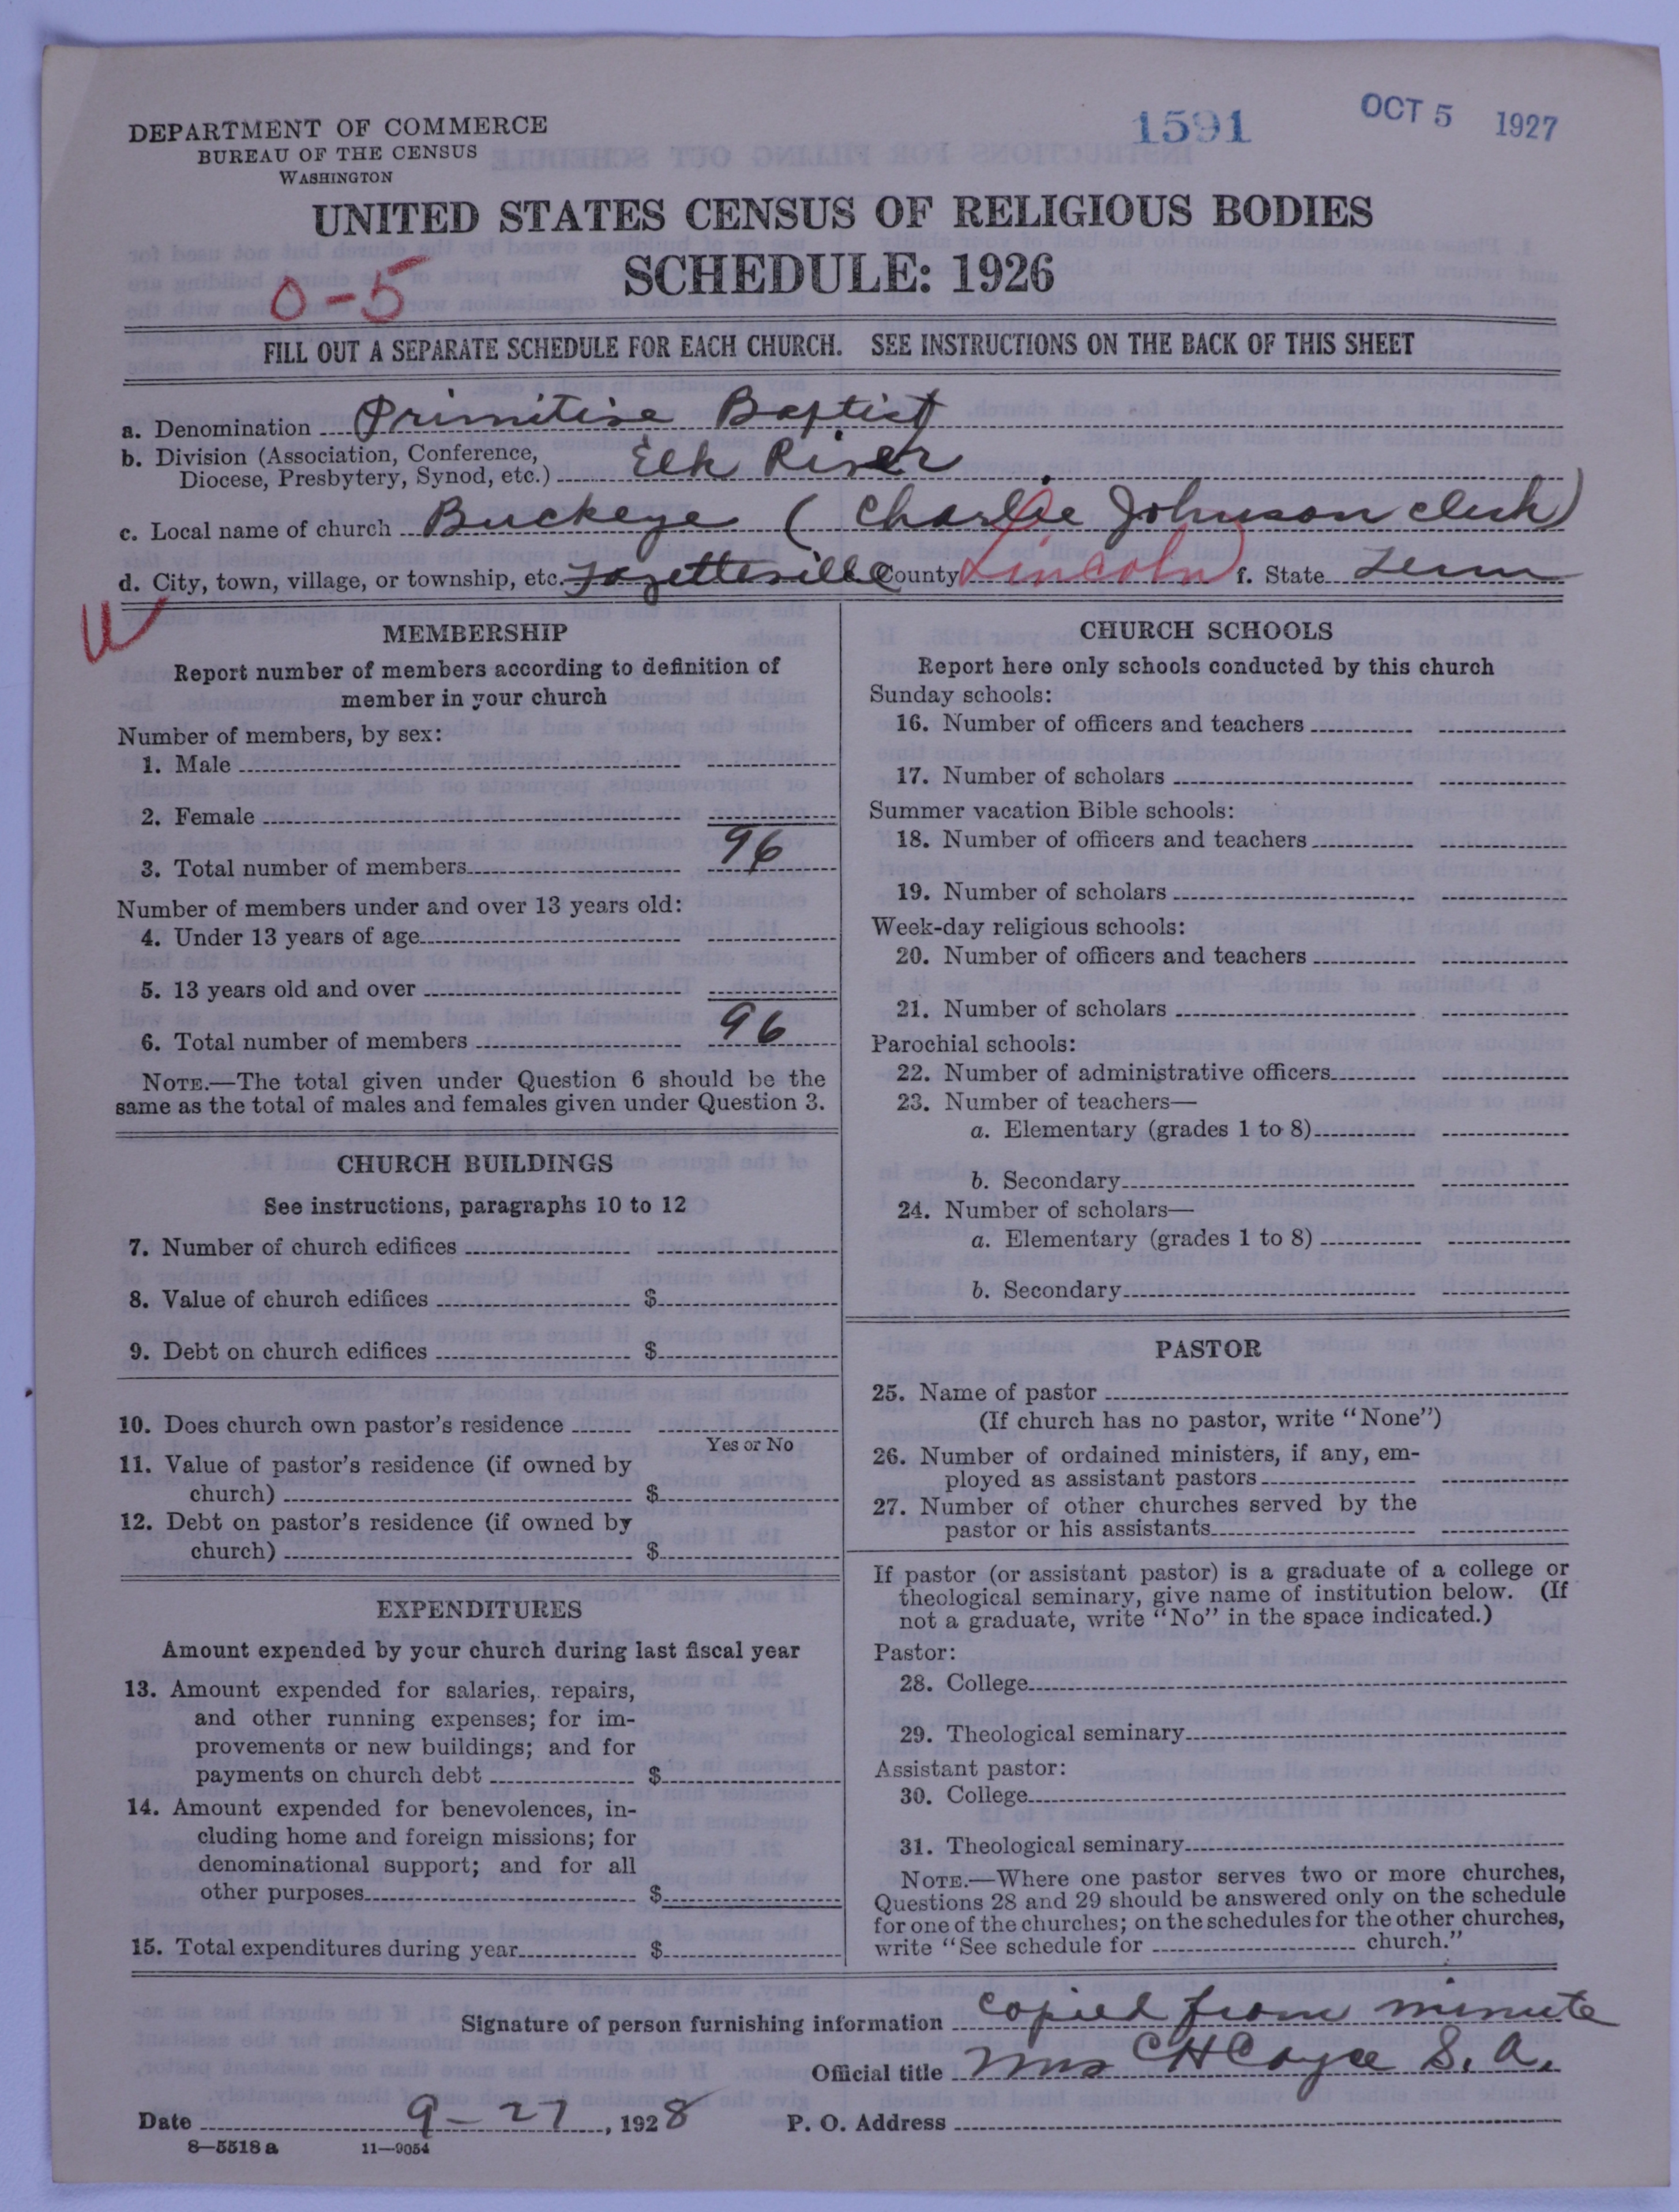 DEPARTMENT OF COMMERCE
BUREAU OF THE CENSUS
WASHINGTON
1591
OCT 5 1927
UNITED STATES CENSUS OF RELIGIOUS BODIES
SCHEDULE: 1926
0-5
FILL OUT A SEPARATE SCHEDULE FOR EACH CHURCH. SEE INSTRUCTIONS ON THE BACK OF THIS SHEET
a. Denomination Primitive Baptist
b. Division (Association, Conference,
Diocese, Presbytery, Synod, etc.) Elk River
c. Local name of church Buckeye (Charlie Johnson clerk)
d. City, town, village, or township, etc. Fayetteville County Lincoln f. State Tenn
MEMBERSHIP
Report number of members according to definition of
member in your church
Number of members, by sex:
1. Male
2. Female
3. Total number of members 96
Number of members under and over 13 years old:
4. Under 13 years of age
5. 13 years old and over
6. Total number of members 96
NOTE.—The total given under Question 6 should be the
same as the total of males and females given under Question 3.
CHURCH BUILDINGS
See instructions, paragraphs 10 to 12
7. Number of church edifices
8. Value of church edifices $
9. Debt on church edifices $
10. Does church own pastor's residence
Yes or No
11. Value of pastor's residence (if owned by
church) $
12. Debt on pastor's residence (if owned by
church) $
EXPENDITURES
Amount expended by your church during last fiscal year
13. Amount expended for salaries, repairs,
and other running expenses; for im-
provements or new buildings; and for
payments on church debt $
14. Amount expended for benevolences, in-
cluding home and foreign missions; for
denominational support; and for all
other purposes $
15. Total expenditures during year $
CHURCH SCHOOLS
Report here only schools conducted by this church
Sunday schools:
16. Number of officers and teachers
17. Number of scholars
Summer vacation Bible schools:
18. Number of officers and teachers
19. Number of scholars
Week-day religious schools:
20. Number of officers and teachers
21. Number of scholars
Parochial schools:
22. Number of administrative officers
23. Number of teachers—
a. Elementary (grades 1 to 8)
b. Secondary
24. Number of scholars—
a. Elementary (grades 1 to 8)
b. Secondary
PASTOR
25. Name of pastor
(If church has no pastor, write "None")
26. Number of ordained ministers, if any, em-
ployed as assistant pastors
27. Number of other churches served by the
pastor or his assistants
If pastor (or assistant pastor) is a graduate of a college or
theological seminary, give name of institution below. (If
not a graduate, write "No" in the space indicated.)
Pastor:
28. College
29. Theological seminary
Assistant pastor:
30. College
31. Theological seminary
NOTE.—Where one pastor serves two or more churches,
Questions 28 and 29 should be answered only on the schedule
for one of the churches; on the schedules for the other churches,
write "See schedule for church."
Signature of person furnishing information copied from minute
Official title Mrs C H Cayce S. A.
Date 9-27, 1928 P. O. Address
8—5518a 11—9054